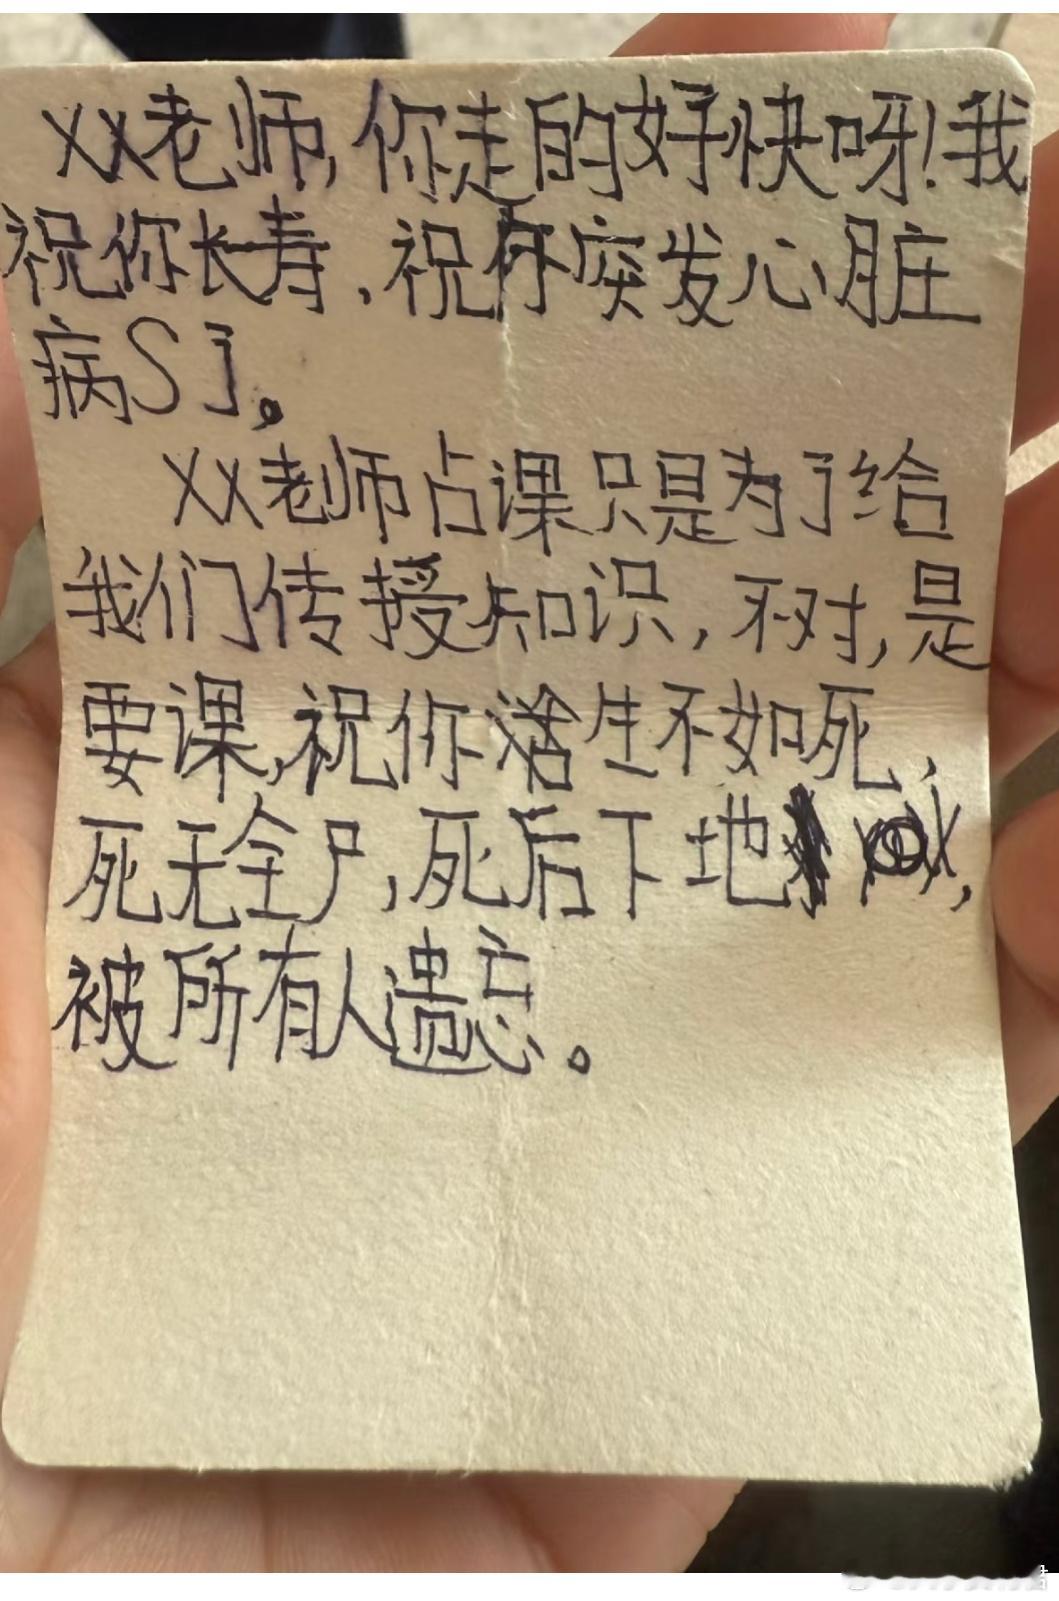 xx老师,你走的好快呀!我
祝你长寿、祝你突发心脏
病S了。
xx老师占课只是为了给
我们传授知识,不对,是
要课,祝你活生不如死、
死无全尸,死后下地
被所有人遗忘。